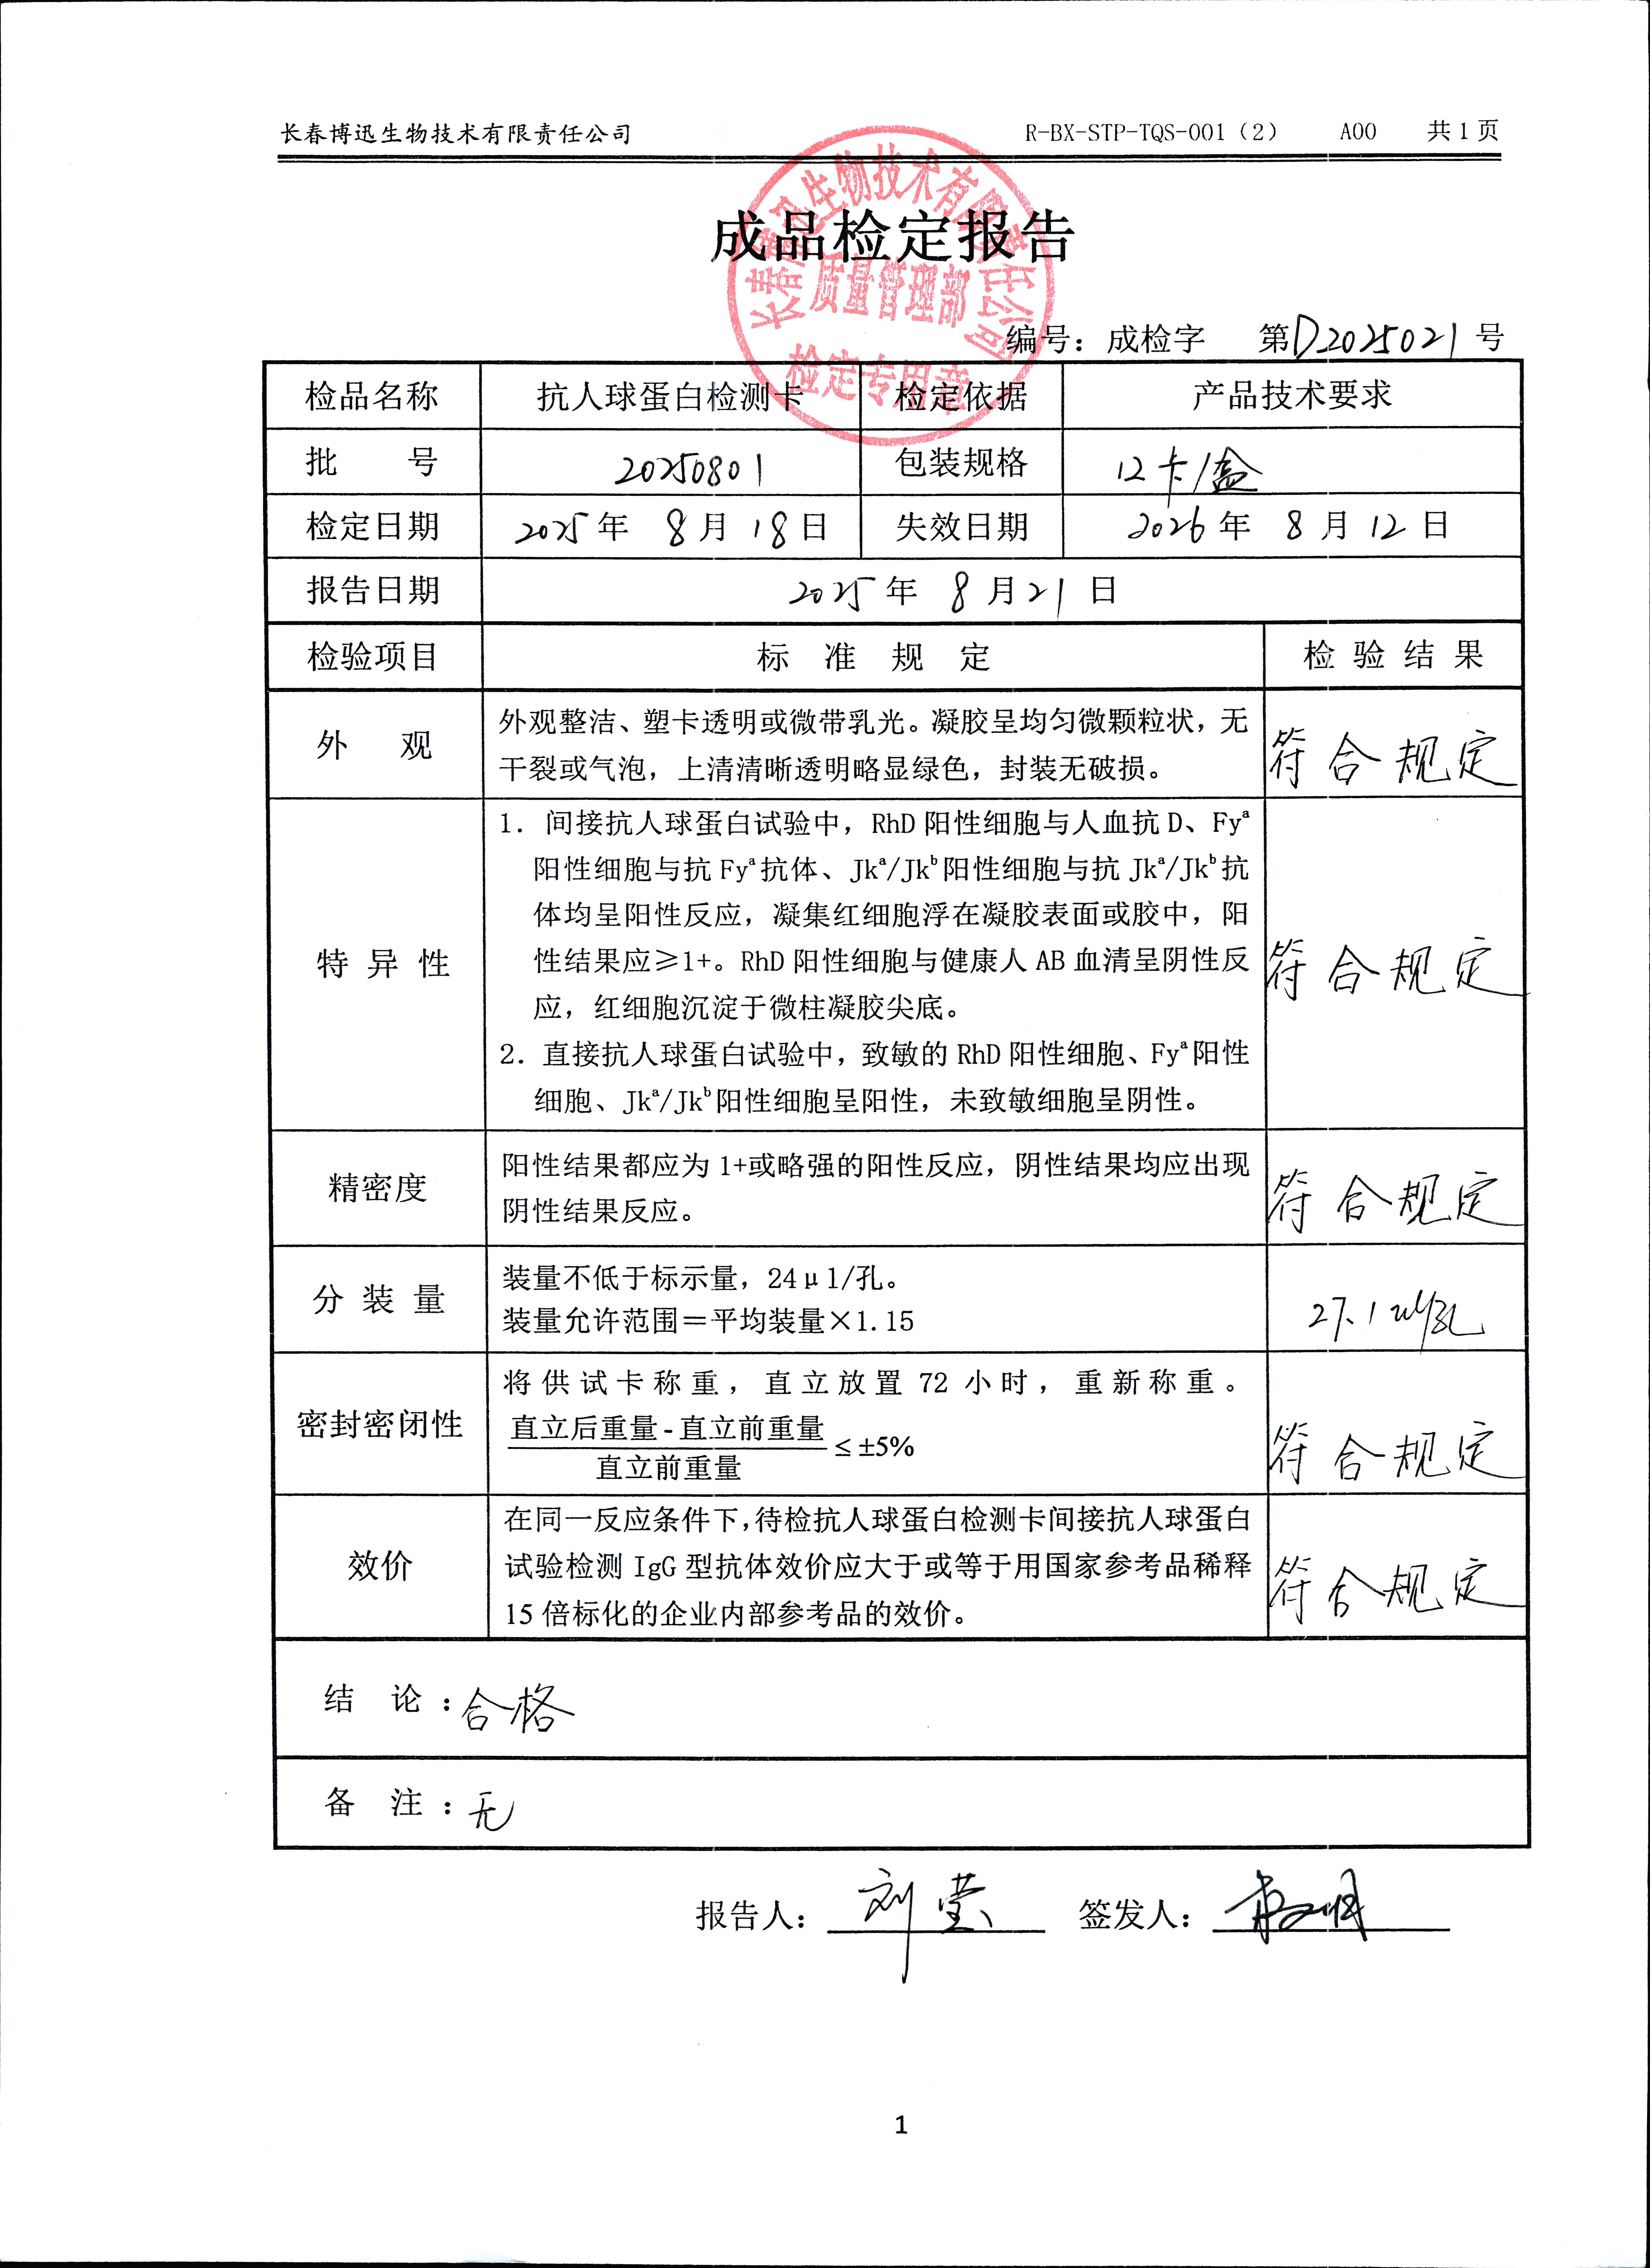 长春博迅生物技术有限责任公司 R-BX-STP-TQS-001（2） A00 共1页
长春博迅生物技术有限责任公司
质量管理部
检定专用章
成品检定报告
编号：成检字 第D2025021号
检品名称 抗人球蛋白检测卡 检定依据 产品技术要求
批 号 20250801 包装规格 12卡/盒
检定日期 2025年 8月 18日 失效日期 2026年 8月 12日
报告日期 2025年 8月21日
检验项目 标 准 规 定 检 验 结 果
外 观
外观整洁、塑卡透明或微带乳光。凝胶呈均匀微颗粒状，无
干裂或气泡，上清清晰透明略显绿色，封装无破损。
符合规定
特 异 性
1．间接抗人球蛋白试验中，RhD 阳性细胞与人血抗 D、Fyª
阳性细胞与抗 Fyª 抗体、Jkª/Jkᵇ 阳性细胞与抗 Jkª/Jkᵇ 抗
体均呈阳性反应，凝集红细胞浮在凝胶表面或胶中，阳
性结果应≥1+。RhD 阳性细胞与健康人 AB 血清呈阴性反
应，红细胞沉淀于微柱凝胶尖底。
2．直接抗人球蛋白试验中，致敏的 RhD 阳性细胞、Fyª 阳性
细胞、Jkª/Jkᵇ 阳性细胞呈阳性，未致敏细胞呈阴性。
符合规定
精密度
阳性结果都应为 1+或略强的阳性反应，阴性结果均应出现
阴性结果反应。
符合规定
分 装 量
装量不低于标示量，24μl/孔。
装量允许范围＝平均装量×1.15
27.1ul/孔
密封密闭性
将供试卡称重，直立放置 72 小时，重新称重。
直立后重量-直立前重量
直立前重量
≤ ±5%
符合规定
效价
在同一反应条件下，待检抗人球蛋白检测卡间接抗人球蛋白
试验检测 IgG 型抗体效价应大于或等于用国家参考品稀释
15 倍标化的企业内部参考品的效价。
符合规定
结 论：合格
备 注：无
报告人：刘莹 签发人：
1